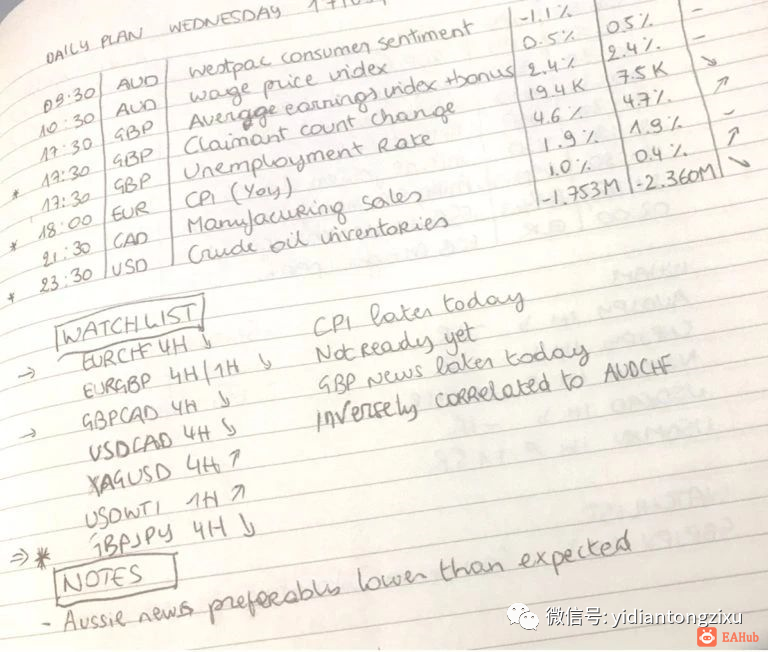 DAILY PLAN WEDNESDAY
09:30 AUD Westpac consumer sentiment -1.1%
10:30 AUD wage price index 0.5% 0.5% -
17:30 GBP Average earnings index + bonus 2.4% 2.4% -
* 17:30 GBP Claimant count change 19.4K 7.5K ↘
17:30 GBP Unemployment Rate 4.6% 4.7% ↗
* 18:00 EUR CPI (Yoy) 1.9% 1.9% -
21:30 CAD Manufacuring sales 1.0% 0.4% ↗
* 23:30 USD Crude oil inventories -1.753M -2.360M ↘
WATCHLIST
→ EURCHF 4H ↘ CPI later today
EURGBP 4H/1H ↘ Not ready yet
→ GBPCAD 4H ↘ GBP News later today
USDCAD 4H ↘ inversely correlated to AUDCHF
XAGUSD 4H ↗
USOWTI 1H ↗
⇒ * GBPJPY 4H ↘
NOTES
- Aussie news preferably lower than expected
微信号: yidiantongzixu
EAHub